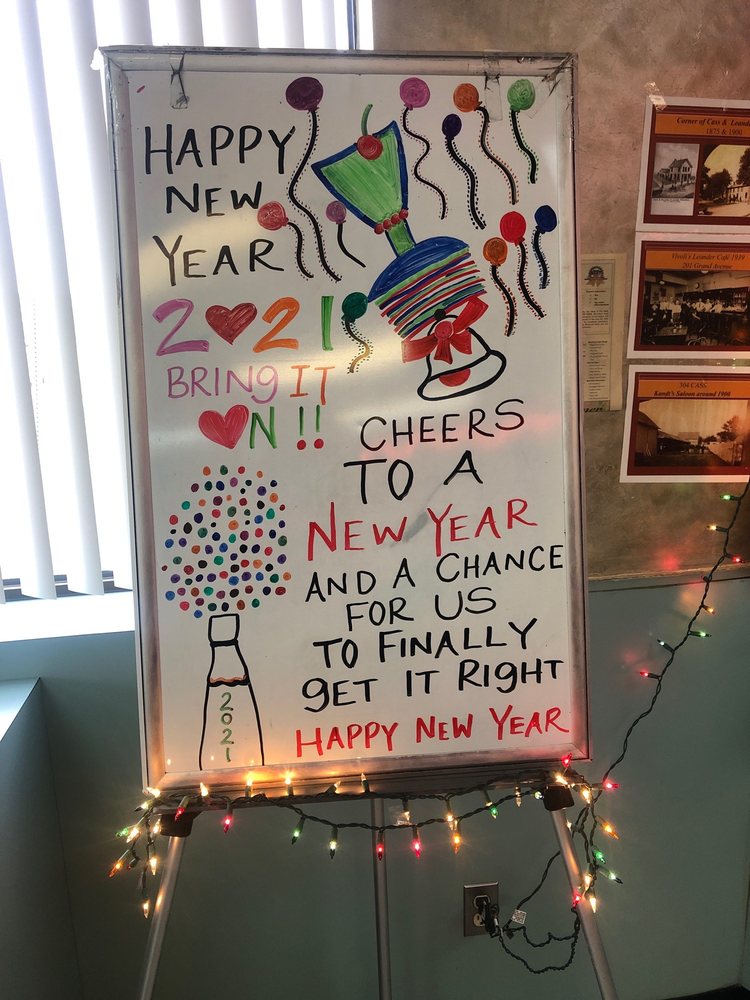 HAPPY
NEW
YEAR
2021
BRING IT
ON!!
CHEERS
TO A
NEW YEAR
AND A CHANCE
FOR US
TO FINALLY
GET IT RIGHT
HAPPY NEW YEAR
2021
Corner of Cass & Leander
1875 & 1900
Vivoli's Leander Café 1939
201 Grand Avenue
304 CASS
Kandt's Saloon around 1900